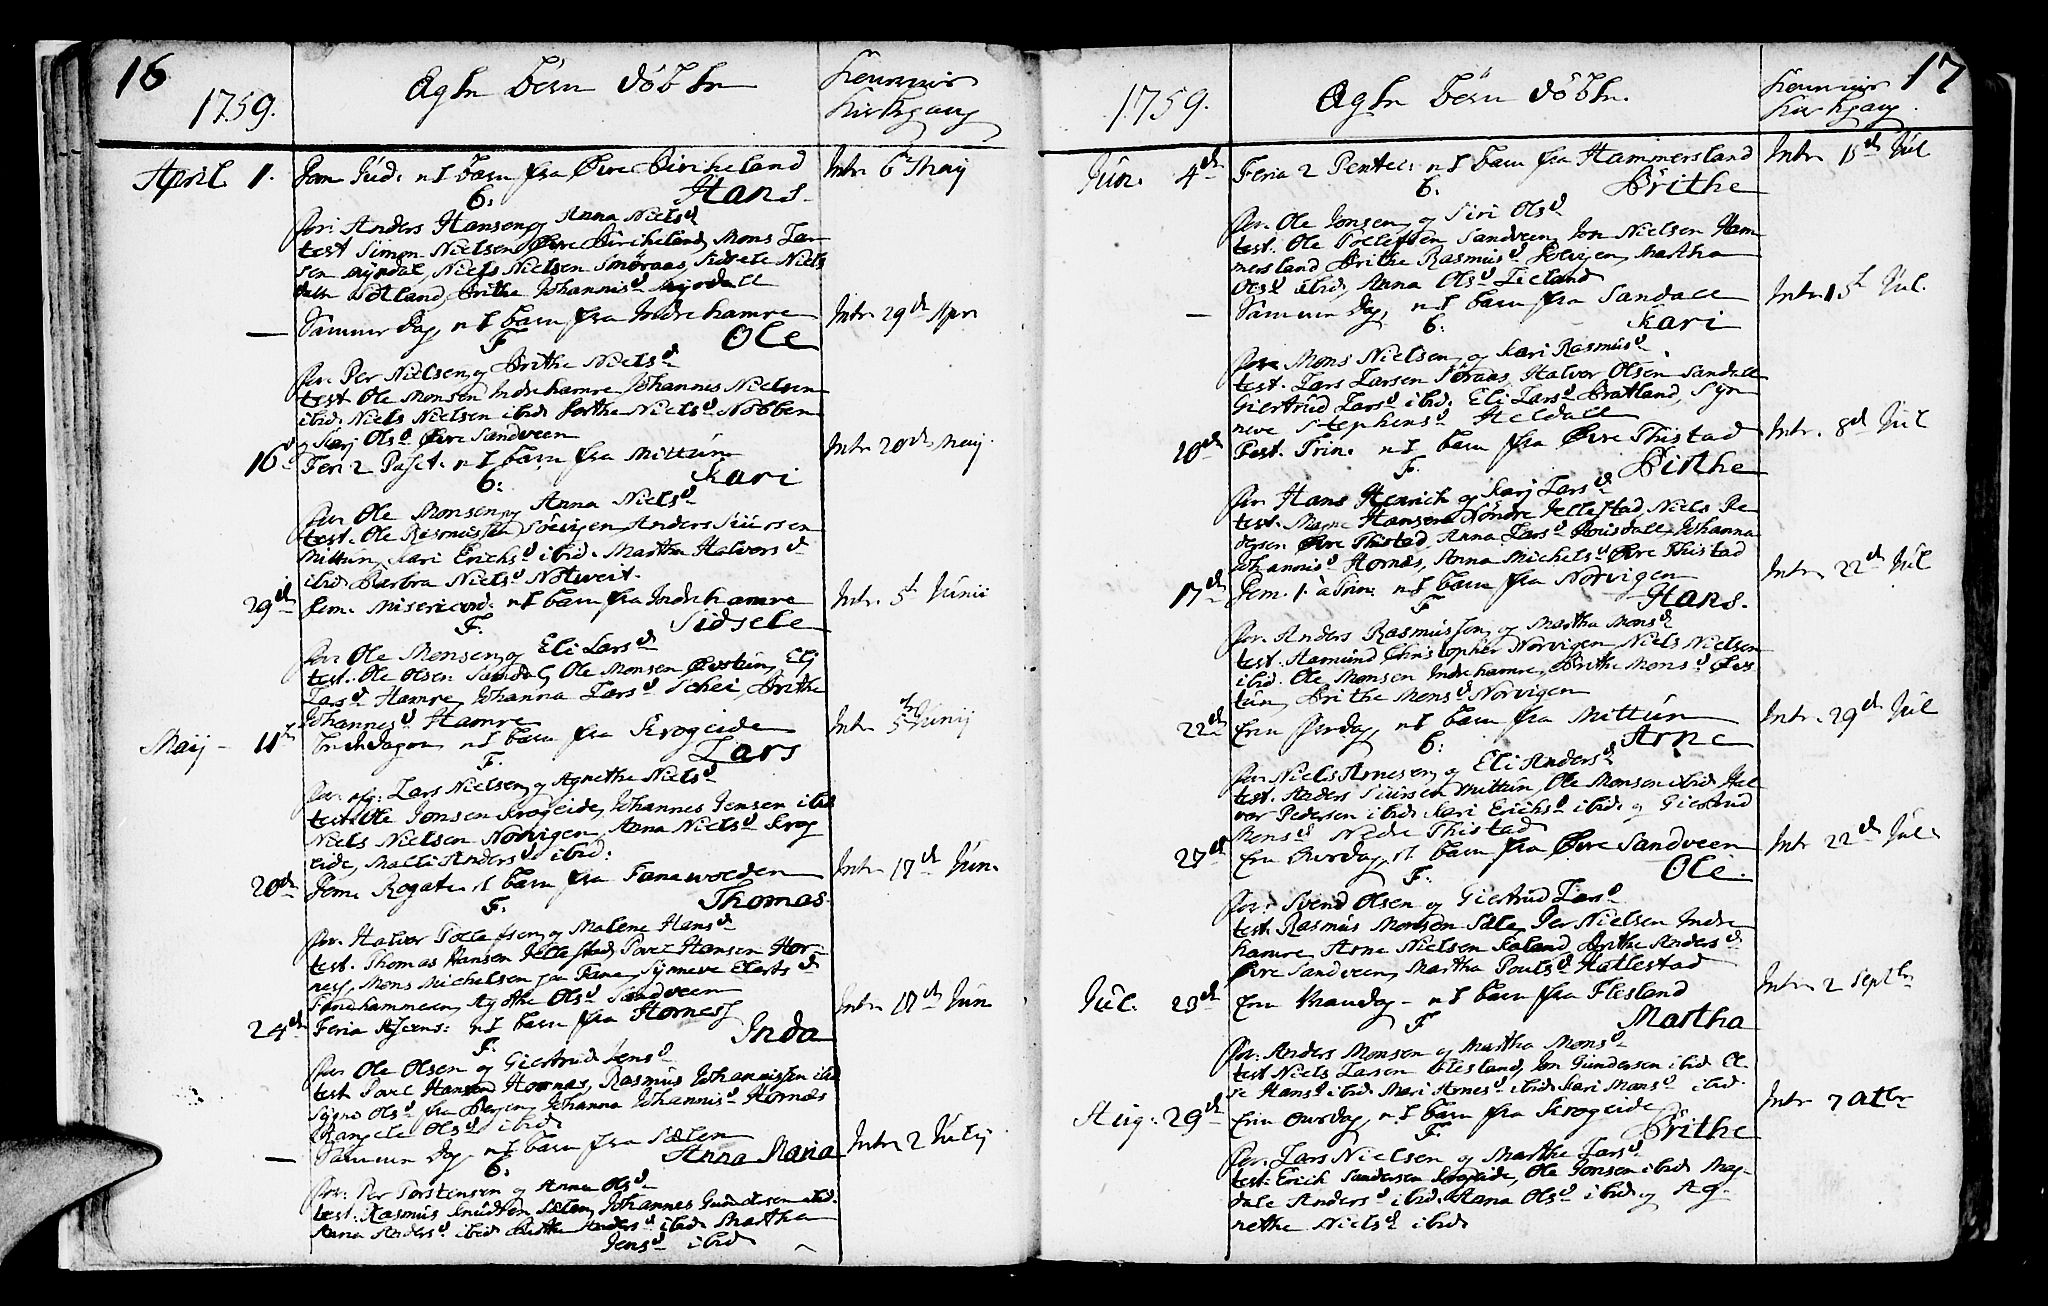 16
1759.
Ægte börn döbte
Kirkegang
April 1. Dom Jud: 1 barn fra Øvre Birkeland Intr. 6 Maij
6: Hans
Par: Anders Hansen og Anna Nielsd
test Simon Nielsen Øvre Birkeland, Mons Lar
sen Myrdal, Niels Nielsen Smöraas, Sidsele Niels
datter Botland, Brithe Johannisd Myrdall
— Samme Dag 1 barn fra Indrehamre Intr. 29d Apr
F Ole
Par. Per Nielsen og Brithe Nielsd
test Ole Monsen Indrehamre Johannes Nielsen
ibid. Niels Nielsen ibid Berthe Nielsd Nöbben
og Karj Olsd Øvre Sandveen
16d Feri 2 Pasc. 1 barn fra Mittün Intr. 20d Maij
6: Kari
Par Ole Monsen og Anna Nielsd
test. Ole Rasmussen Sörvigen, Anders Siursen
Mittün, Kari Erichsd ibid. Martha Halvorsd
ibid Barbra Nielsd Nötweit.
29d Dom. Misericord. 1 barn fra Indrehamre Intr. 5t Junii
F. Sidsele
Par Ole Monsen og Eli Larsd
test. Ole Olsen Sandal, Ole Monsen Øvstün, Elj
Larsd Hamre, Johanna Larsd Schei, Brithe
Johannesd Hamre
Maij — 11t Bededagen 1 barn fra Krogeide Intr 5 Junij
F. Lars
Par: Lars Nielsen og Agnethe Nielsd
test: Ole Jonsen Krogeide, Johannes Jensen ibid
Niels Nielsen Norvigen, Anna Nielsd Krog
eide, Malli Andersd ibid:
20d Dom: Rogate 1 barn fra Fanewolden Intr. 17d Jun.
F. Thomas
Par. Halvor Tollefsen og Malene Hansd
test. Thomas Hansen Jellestad, Povel Hansen Hor-
nes, Mons Michelsen paa Fane, Synneve Elertsd
Fanehammeren, Agathe Olsd Sandveen
24d Feria Ascens: 1 barn fra Hornes Intr 17d Jun
F: Inda
Par Ole Olsen og Giertrud Jensd
test Povel Hansen Hornæs, Rasmus Johannissen ibid
Sygne Olsd fra Bergen, Johanna Johannisd Hornæs
Rangele Olsd ibid
— Samme Dag 1 barn fra Sælen Intr 2 Julij
6: Anna Maria
Par: Per Torstensen og Anna Olsd
test. Rasmus Knudsen Sælen, Johannes Gundersen ibid.
Anna Andersd ibid Brithe Andersd ibid Martha
Jensd ibid
17
1759.
Ægte börn döbte.
Kirkegang
Jun. 4d Feria 2 Pentec: 1 barn fra Hammersland Intr 15d Jul
6: Brithe
Par. Ole Jonsen og Siri Olsd
test. Ole Tollefsen Sandveen, Jon Nielsen Ham
mersland Brithe Rasmusd Sörvigen, Martha
Olsd ibid, Anna Olsd Lieland
— Samme Dag, 1 barn fra Sandall Intr. 15t Jul.
6: Kari
Par Mons Nielsen og Kari Rasmusd
test. Lars Larsen Söraas, Halvor Olsen Sandall
Giertrud Larsd ibid. Eli Larsd Bratland, Syn
neve Stephensd Heldall
10d Fest. Trin. 1 barn fra Øvre Thistad Intr. 8d Jul
F. Birthe
Par Hans Henrich og Karj Larsd
test. Magne Hansen Nöndre Jellestad, Niels Pe
dersen Øvre Thistad, Anna Larsd Risdall, Johanna
Johannisd Hornæs, Anna Michelsd Øvre Thistad
17d Dom. 1 à Trin: 1 barn fra Norvigen Intr. 22d Jul
F Hans.
Par. Anders Rasmussen og Martha Monsd
test. Hamund Christopher Norvigen Niels Nielsen
ibid. Ole Monsen Indrehamre, Brithe Monsd Øvs
tün, Brithe Monsd Norvigen
22d 1 barn fra Mittün Intr. 29d Jul
6: Arne
Par Niels Arnesen og Eli Andersd
test. Anders Siursen Mittün, Ole Monsen ibid Hal
vor Pedersen ibid Kari Erichsd ibid. og Giertrud
Monsd Nedre Thistad
27d Onsdag, 1 barn fra Øvre Sandveen Intr 22d Jul
F. Ole.
Par: Svend Olsen og Giertrud Larsd
test. Rasmus Monsen Sæle, Per Nielsen Indre
hamre Arne Nielsen Søland, Brithe Andersd
Øvre Sandveen, Martha Poulsd Hatlestad
Jul. 23d Mandag — 1 barn fra Flesland Intr. 2 Septbr
F Martha
Par: Anders Monsen og Martha Monsd
test Niels Larsen Flesland, Jon Gundersen ibid El-
se Hansd ibid. Mari Arnesd ibid. Kari Monsd ibid.
Aug. 29d Onsdag, 1 barn fra Krogeide Intr 7 Octbr
F. Brithe
Par. Lars Nielsen og Marthe Larsd
test: Erich Sandersen Krogeide, Ole Jonsen ibid Mag-
dale Andersd ibid. Anna Olsd ibid. og Ag-
nethe Nielsd ibid